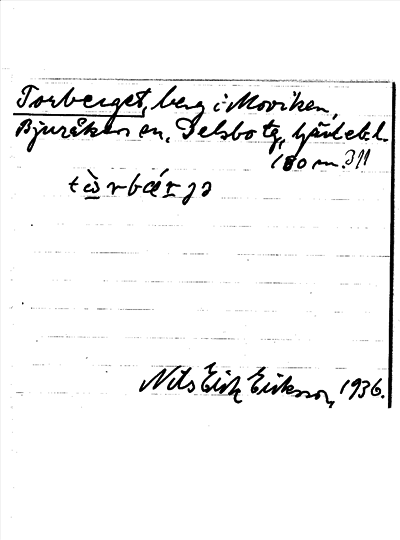 Torberget, berg i Moviken,
Bjuråkers sn, Delsbo tg, Gävlebl.
180 m.
tàrbárjə
Nils Erik Eriksson, 1936.